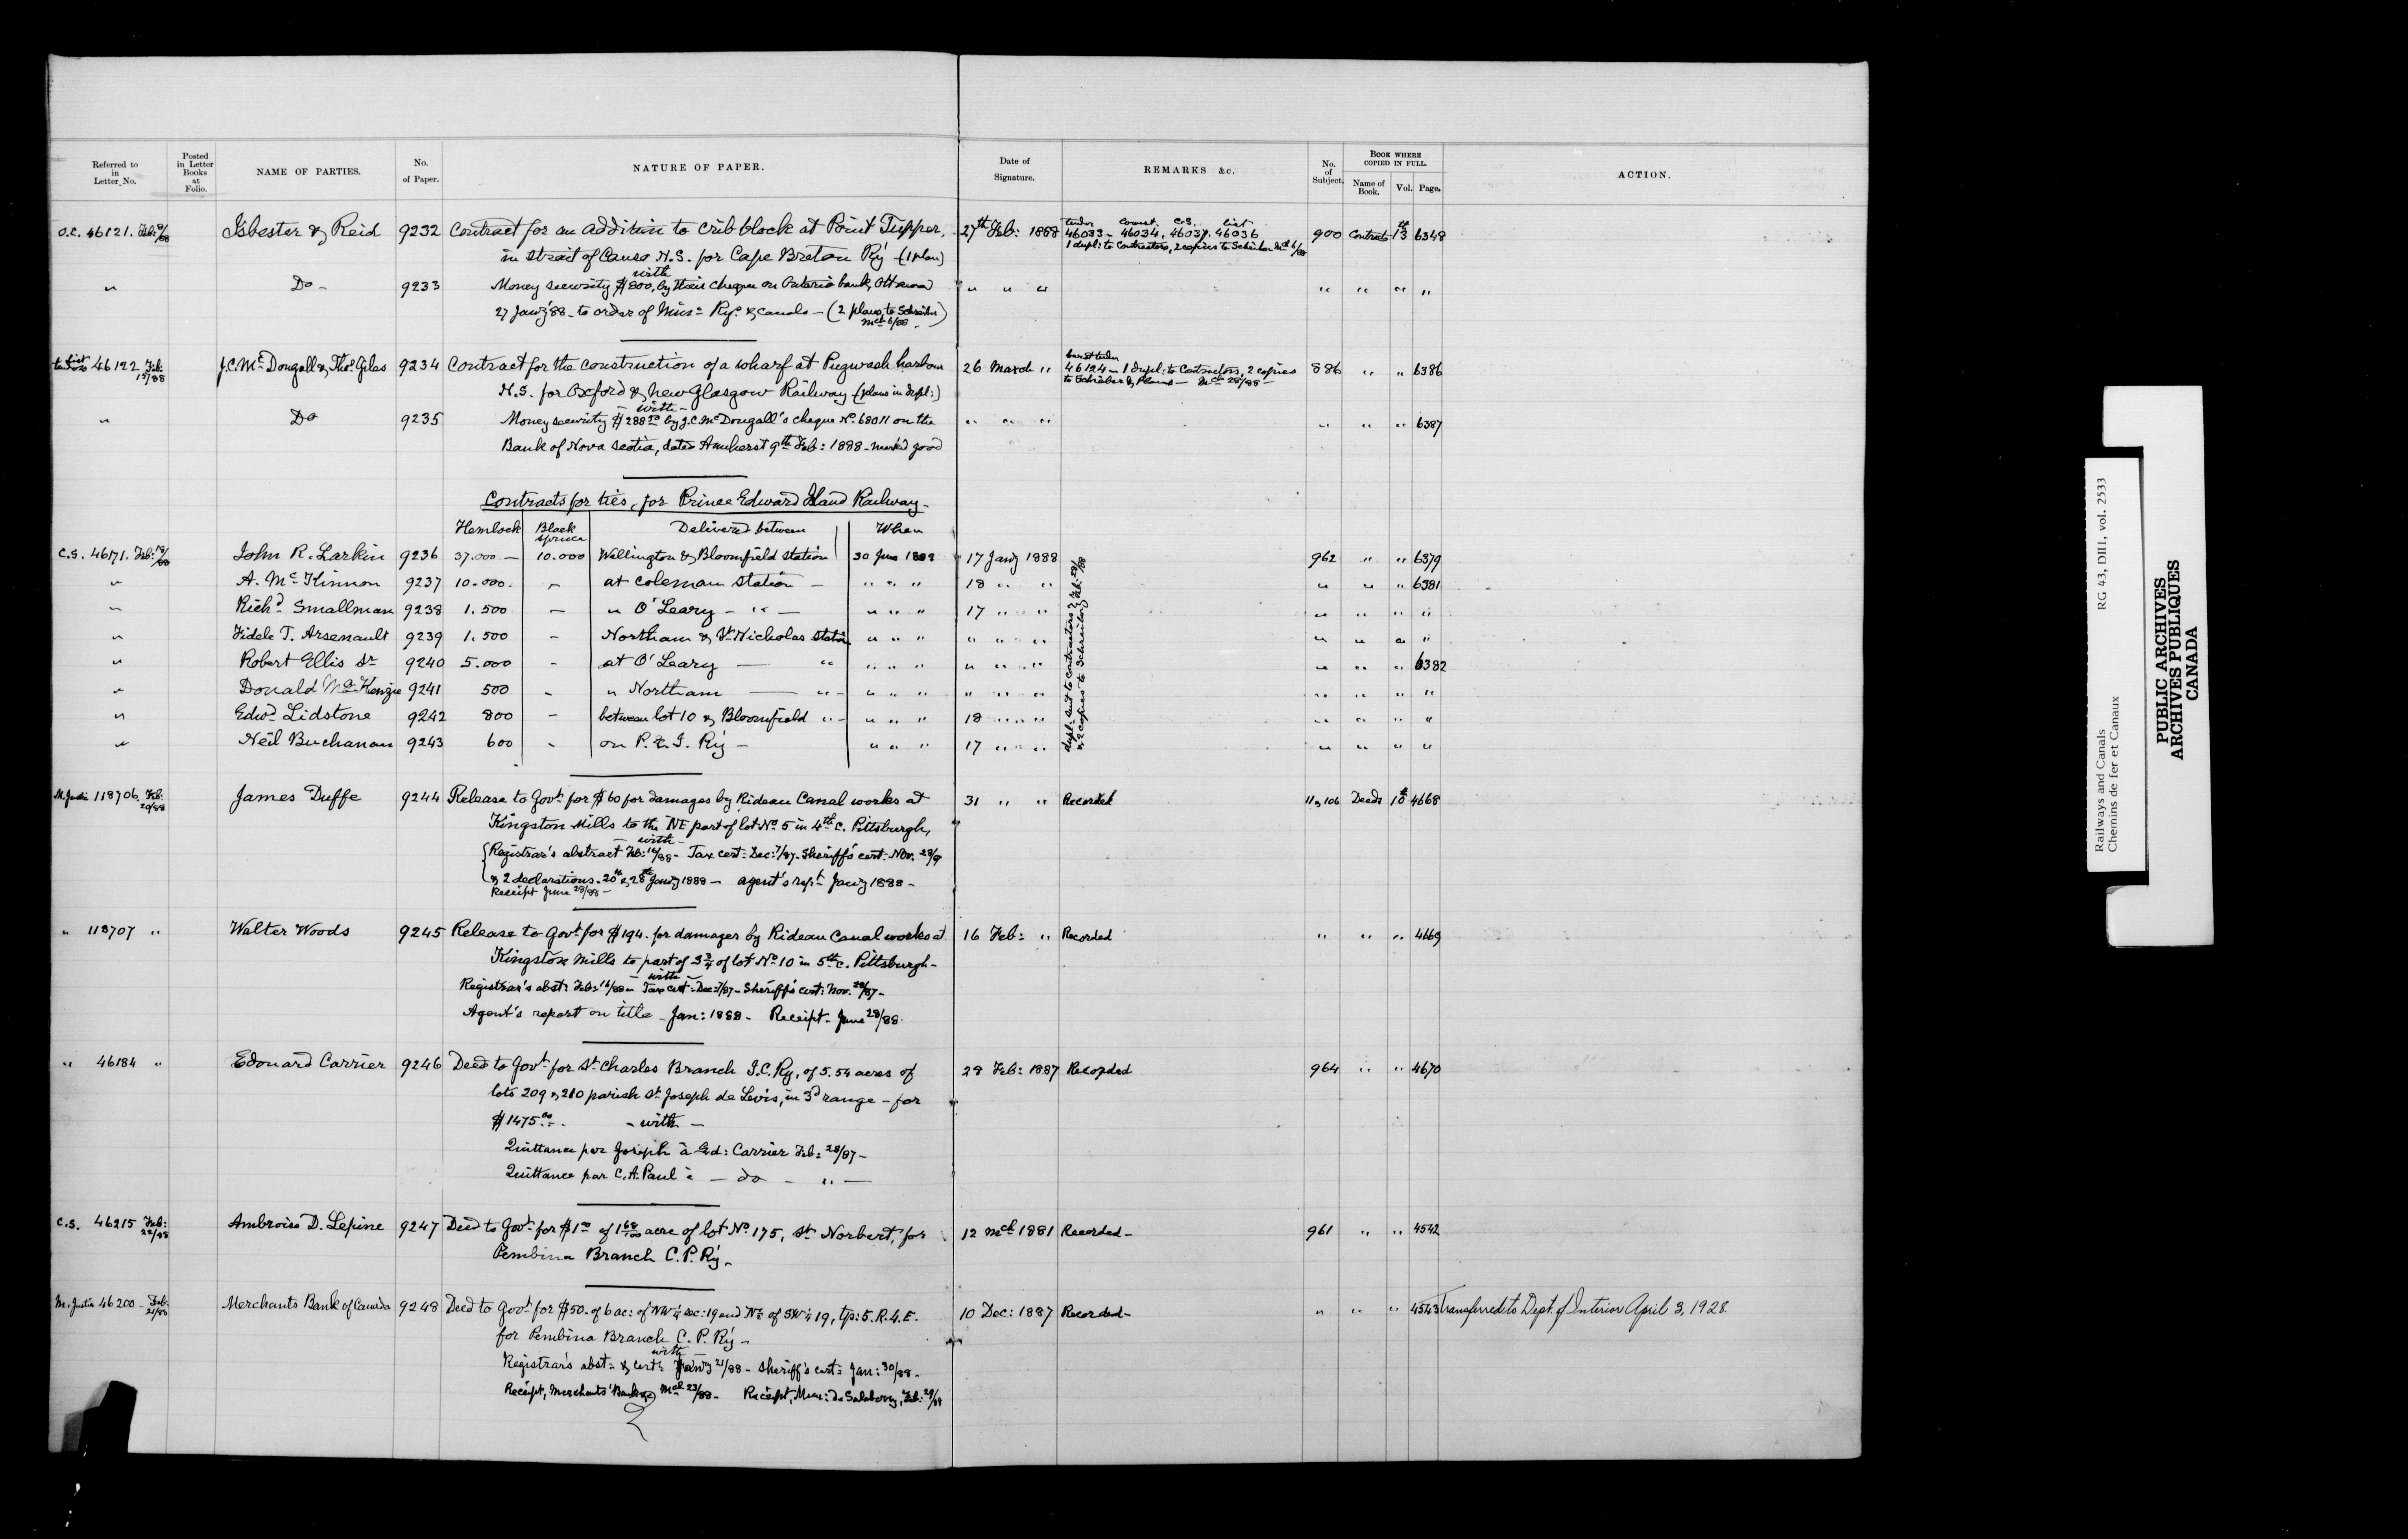 Referred to in Letter No.
Posted in Letter Books at Folio.
NAME OF PARTIES.
No. of Paper.
NATURE OF PAPER.
Date of Signature.
REMARKS &c.
No. of Subject.
BOOK WHERE COPIED IN FULL.
Name of Book. Vol. Page.
ACTION.
O.C. 46121. Feb: 9/88 Isbester & Reid 9232 Contract for an addition to crib block at Point Tupper, 27th Feb: 1888 tender 46033 - lowest 46034, C.S. 46037. list 46036 900 Contracts 13th 6348
in strait of Canso N.S. for Cape Breton Ry (1 plan) 1 dupl: to Contractors, 2 copies to Schreiber Mch 6/88
with
" Do - 9233 Money security $800, by their cheque on Ontario bank, Ottawa " " " " " " "
27 Jany '88 - to order of Minr Rys & canals - (2 plans to Schreiber Mch 6/88 -)
list tenders 46122 Feb: 15/88 J.C. McDougall & Thos Giles 9234 Contract for the construction of a wharf at Pugwash harbour 26 March " lowest tender 46124 - 1 dupl: to Contractors, 2 copies 886 " " 6386
N.S. for Oxford & New Glasgow Railway (plans in dept:) to Schreiber & plans - Mch 28/88 -
- with -
" Do 9235 Money security $288 by J.C. McDougall's cheque No 68011 on the " " " " " " 6387
Bank of Nova Scotia, dated Amherst 9th Feb: 1888 - marked good
Contracts for ties, for Prince Edward Island Railway -
Hemlock Black spruce Delivered between When
C.S. 46171. Feb: 18/88 John R. Larkin 9236 37.000 - 10.000 Wellington & Bloomfield station 30 June 1888 17 Jany 1888 962 " " 6379
" A. McKinnon 9237 10.000. - at Coleman Station - " " " 18 " " " " " 6381
" Richd Smallman 9238 1.500 - " O'Leary - " - " " " 17 " " " " " "
" Fidele T. Arsenault 9239 1.500 - Northam & St Nicholas station " " " " " " " " " "
" Robert Ellis Sr 9240 5.000 - at O'Leary - " " " " " " " " " " 6382
" Donald McKenzie 9241 500 - " Northam - " - " " " " " " " " " "
" Edwd Lidstone 9242 800 - between lot 10 & Bloomfield " - " " " 18 " " " " " "
" Neil Buchanan 9243 600 - on P.E.I. Ry - " " " 17 " " " " " "
dupl: sent to Contractors & 2 copies to Schreiber Feb: 28/88
M. Justice 118706. Feb: 20/88 James Duffe 9244 Release to Govt for $60 for damages by Rideau Canal works at 31 " " Recorded 11 & 106 Deeds 10th 4668
Kingston Mills to the NE part of lot No 5 in 4th C. Pittsburgh,
- with -
Registrar's abstract Feb: 16/88 - Tax cert: Dec: 7/87 - Sheriff's cert: Nov. 28/9
& 2 declarations - 20th & 28th Jany 1888 - agent's rept Jany 1888 -
Receipt June 28/88 -
" 118707 " Walter Woods 9245 Release to Govt for $194. for damages by Rideau Canal works at 16 Feb: " Recorded " " " 4669
Kingston Mills to part of 3 3/4 of lot No 10 in 5th C. Pittsburgh -
- with -
Registrar's abst: Feb: 16/88 - Tax cert: Dec: 7/87 - Sheriff's cert: Nov. 28/87 -
Agent's report on title - Jan: 1888 - Receipt - June 28/88.
" 46184 " Edouard Carrier 9246 Deed to Govt for St Charles Branch I.C. Ry, of 5.54 acres of 28 Feb: 1887 Recorded 964 " " 4670
lots 209 & 210 parish St Joseph de Levis, in 3d range - for
$1475.00 - - with -
Quittance par Joseph à Ed: Carrier Feb: 28/87 -
Quittance par C.A. Paul à - do - " -
C.S. 46215 Feb: 22/88 Ambroise D. Lepine 9247 Deed to Govt for $1.00 of 1 68/100 acre of lot No 175, St Norbert, for 12 Mch 1881 Recorded - 961 " " 4542
Pembina Branch C.P. Ry -
M. Justice 46200 - Feb: 21/88 Merchants Bank of Canada 9248 Deed to Govt for $50 - of 6 ac: of NW 1/4 sec: 19 and N 1/2 of SW 1/4 19, tp: 5. R. 4. E. 10 Dec: 1887 Recorded - " " " 4543 Transferred to Dept. of Interior April 3, 1928.
for Pembina Branch C.P. Ry -
with
Registrar's abst: & cert: Jany 21/88 - Sheriff's cert: Jan: 30/88 -
Receipt, Merchants' Bank Mch 23/88 - Receipt, Mme: de Salaberry, Feb: 29/88
Railways and Canals RG 43, DIII, vol. 2533
Chemins de fer et Canaux
PUBLIC ARCHIVES
ARCHIVES PUBLIQUES
CANADA